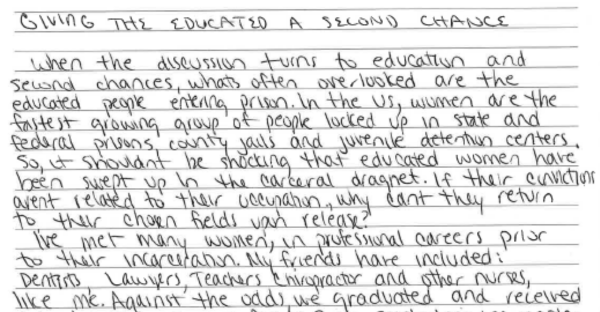 GIVING THE EDUCATED A SECOND CHANCE
When the discussion turns to education and
second chances, whats often overlooked are the
educated people entering prison. In the US, women are the
fastest growing group of people locked up in state and
federal prisons, county jails and juvenile detention centers.
So, it shouldnt be shocking that educated women have
been swept up in the carceral dragnet. If their convictions
arent related to their occupation, why cant they return
to their chosen fields upon release?
I've met many women, in professional careers prior
to their incarceration. My friends have included:
Dentists, Lawyers, Teachers Chiropractor and other nurses,
like me. Against the odds, we graduated and received